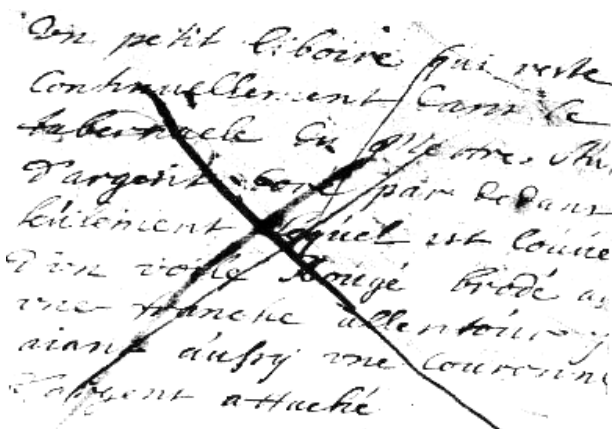 Un petit Ciboire qui reste
Continuellement dans le
tabernacle du
d'argent doré par dedans
seulement lequel est couve
d'un voile Rougé brodé a
une franche allentour
aiant áussy une Couronn
d'argent attaché